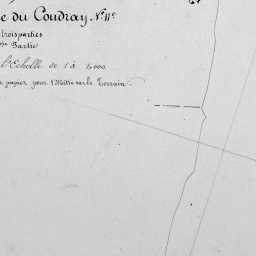 e du Coudray. N.º 11.e
trois parties
Partie
l'Echelle de 1 à 2,000
papier pour 1 Mètre sur le Terrain.